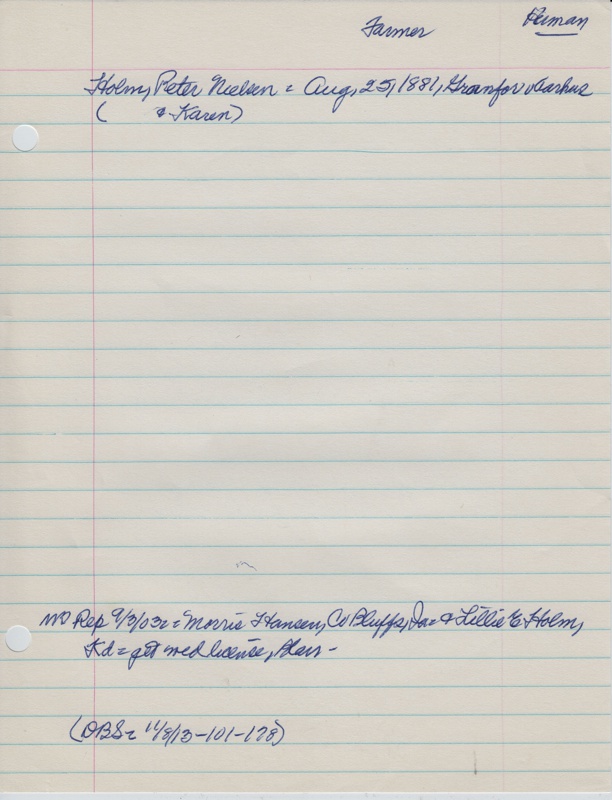 Farmer
Herman
Holm, Peter Nielsen = Aug, 25, 1881, Granfor v Aarhus
( & Karen)
MO Rep 9/3/03 = Morris Hansen, Co Bluffs, Ia = & Lillie E Holm,
Kd = get wed license, Blair -
(DBS = 11/8/13-101-178)